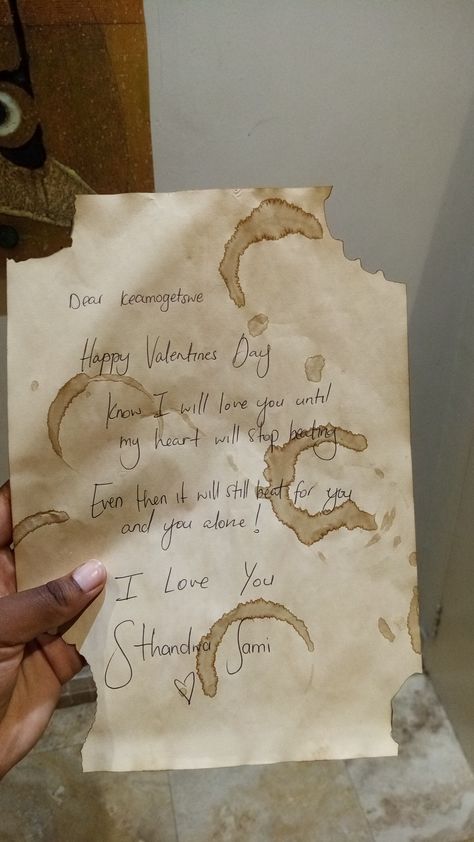 Dear Keamogetswe
Happy Valentines Day
Know I will love you until
my heart will stop beating
Even then it will still beat for you
and you alone!
I Love You
Sthandwa Sami